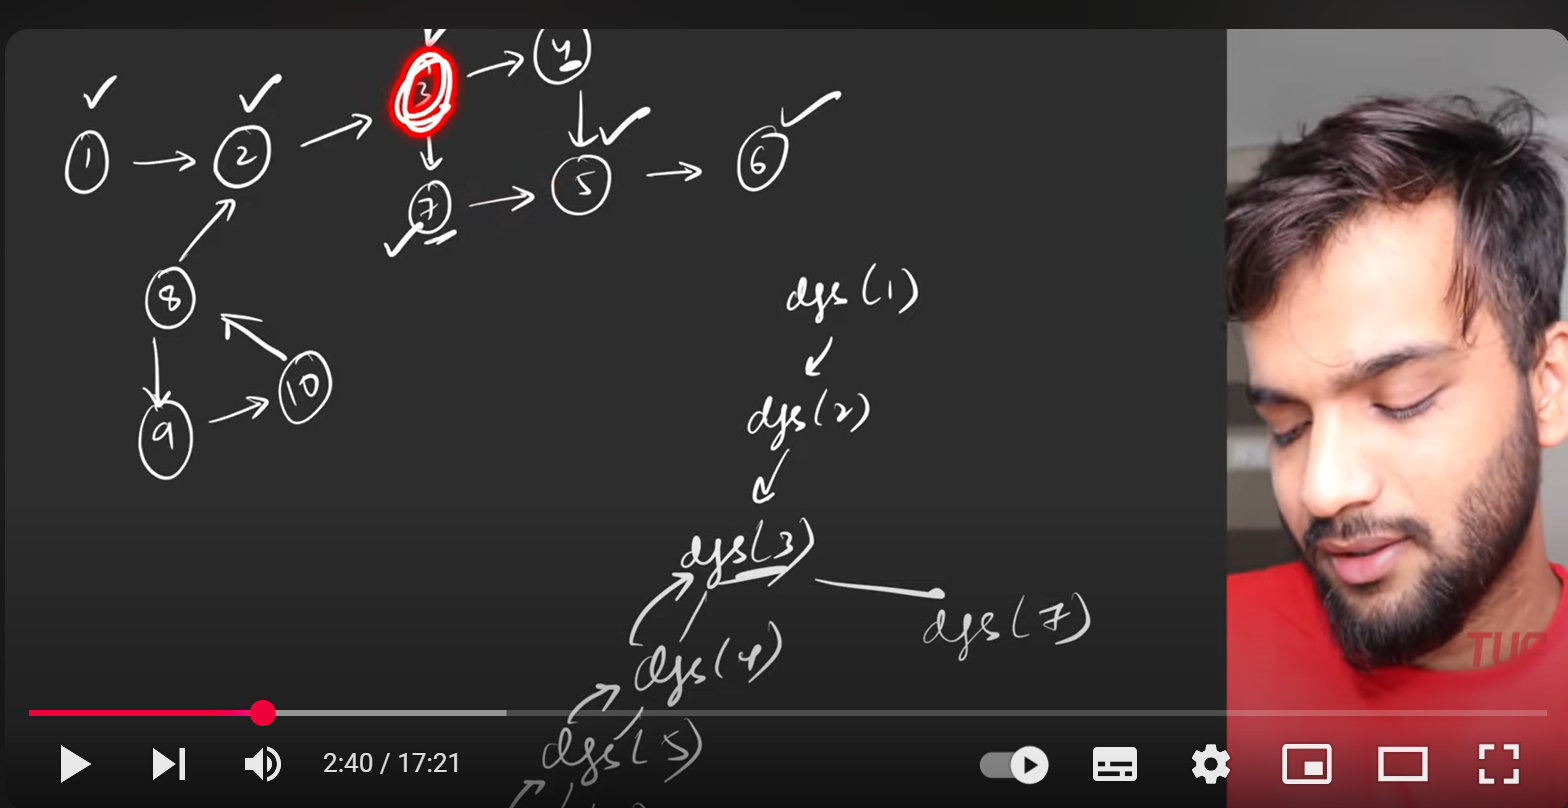 1 2 3 4
7 5 6
8
9 10
dfs(1)
dfs(2)
dfs(3)
dfs(4) dfs(7)
dfs(5)
TUF
2:40 / 17:21